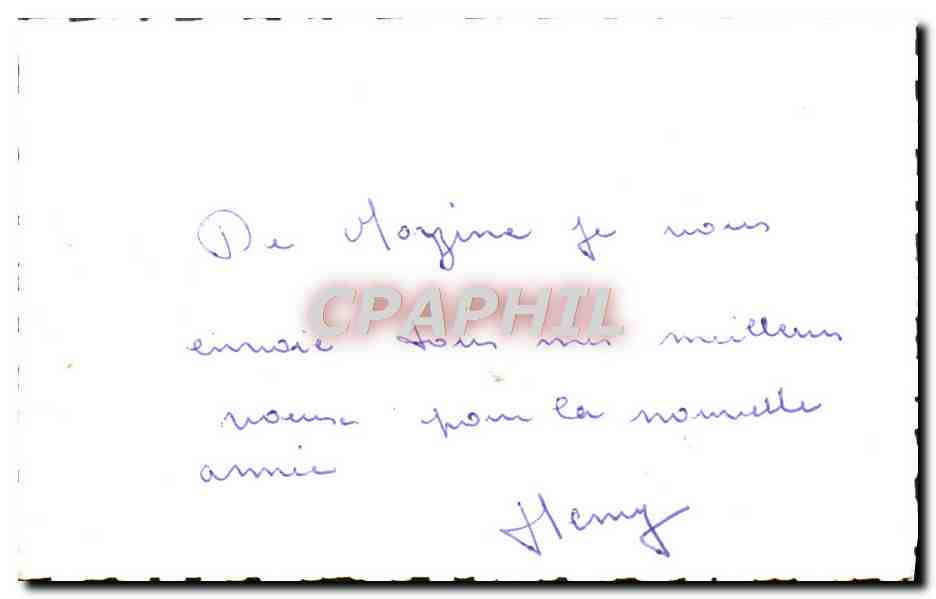 De Morzine je vous
CPAPHIL
envoie tous mes meilleurs
voeux pour la nouvelle
année
Henry